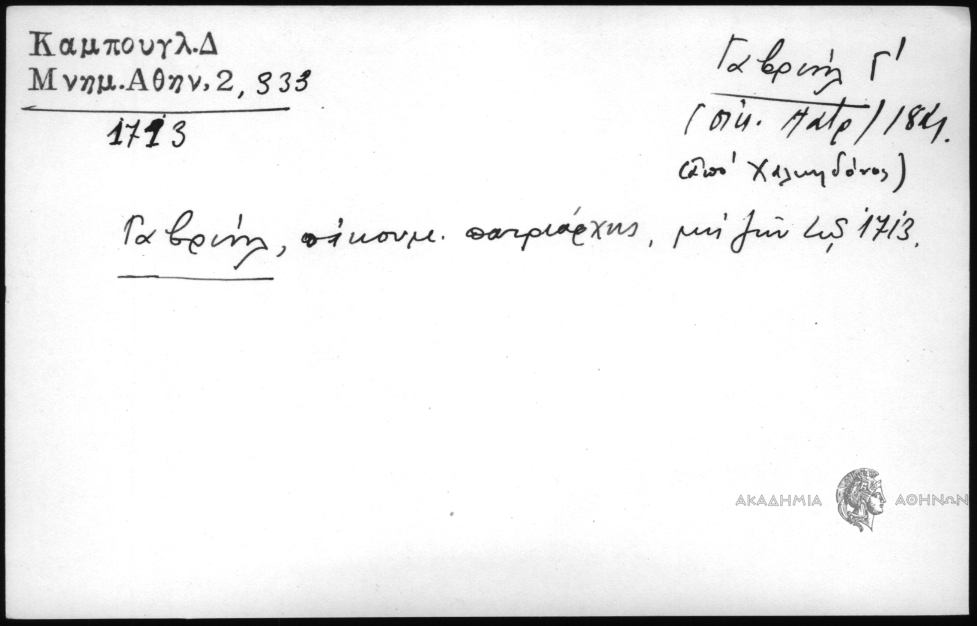 Καμπουγλ.Δ
Μνημ.Αθην. 2, 333
1713
Γαβριήλ Γ'
(οἰκ. Πατρ)
(ἀπό Χαλκηδόνος)
Γαβριήλ, οἰκουμ. πατριάρχης, 1713.
ΑΚΑΔΗΜΙΑ ΑΘΗΝΩΝ